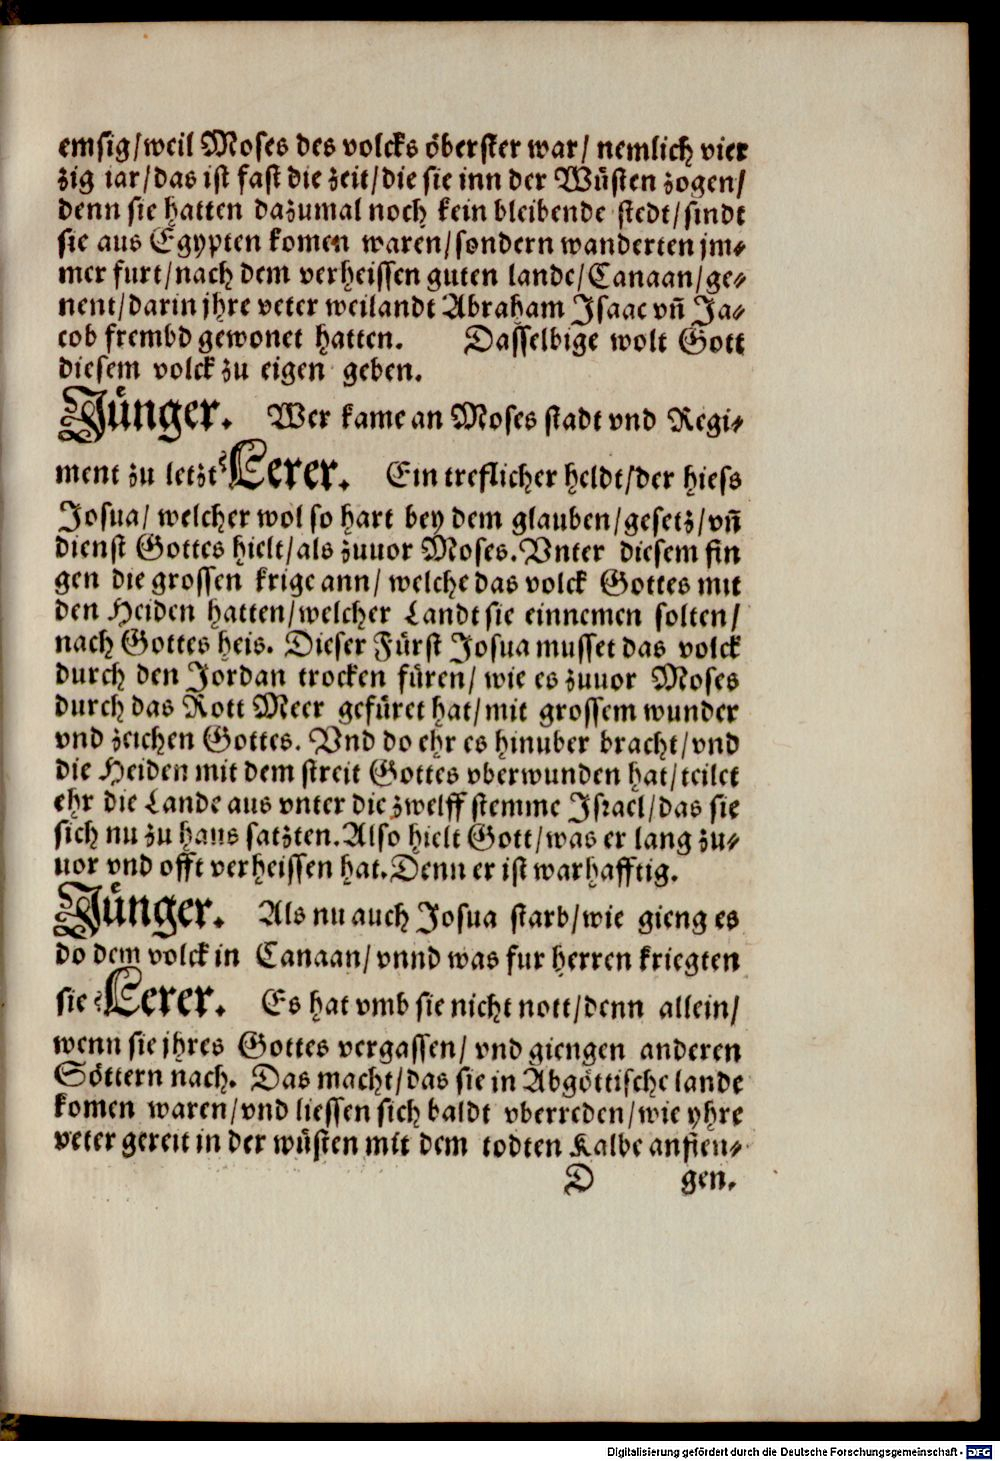 emsig/weil Moses des volcks öberster war/ nemlich vier
zig iar/das ist fast die zeit/die sie inn der Wüsten zogen/
denn sie hatten dazumal noch kein bleibende stedt/sindt
sie aus Egypten komen waren/sondern wanderten jm⸗
mer furt/nach dem verheissen guten lande/Canaan/ge⸗
nent/darin jhre veter weilandt Abraham Isaac vñ Ja⸗
cob frembd gewonet hatten. Dasselbige wolt Gott
diesem volck zu eigen geben.
Jünger. Wer kame an Moses stadt vnd Regi⸗
ment zu letzt? Lerer. Ein treflicher heldt/der hiess
Josua/ welcher wol so hart bey dem glauben/gesetz/vñ
dienst Gottes hielt/als zuuor Moses. Vnter diesem fin
gen die grossen krige ann/ welche das volck Gottes mit
den Heiden hatten/welcher Landt sie einnemen solten/
nach Gottes heis. Dieser Fürst Josua musset das volck
durch den Jordan trocken füren/ wie es zuuor Moses
durch das Rott Meer gefüret hat/mit grossem wunder
vnd zeichen Gottes. Vnd do ehr es hinuber bracht/vnd
die Heiden mit dem streit Gottes vberwunden hat/teilet
ehr die Lande aus vnter die zwelff stemme Israel/das sie
sich nu zu haus satzten. Also hielt Gott/was er lang zu⸗
uor vnd offt verheissen hat. Denn er ist warhafftig.
Jünger. Als nu auch Josua starb/wie gieng es
do dem volck in Canaan/vnnd was fur herren kriegten
sie? Lerer. Es hat vmb sie nicht nott/denn allein/
wenn sie jhres Gottes vergassen/ vnd giengen anderen
Göttern nach. Das macht/das sie in Abgöttische lande
komen waren/vnd liessen sich baldt vberreden/wie yhre
veter gereit in der wüsten mit dem todten Kalbe anfien⸗
D gen.
Digitalisierung gefördert durch die Deutsche Forschungsgemeinschaft - DFG